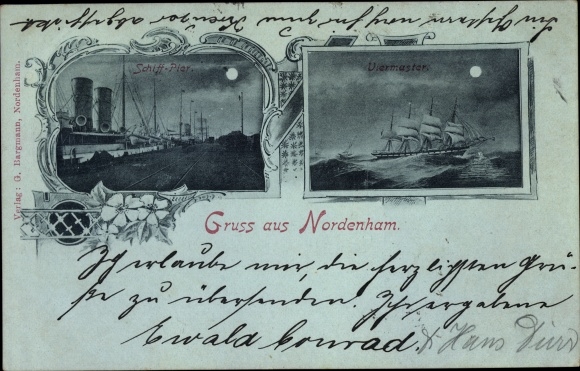 Schiff-Pier.
Viermaster.
Verlag: G. Bargmann, Nordenham.
Gruss aus Nordenham.
Ich erlaube mir, die herzligsten Grü-
ße zu übersenden. Ihr ergabene
Ewald Conrad. & Hans